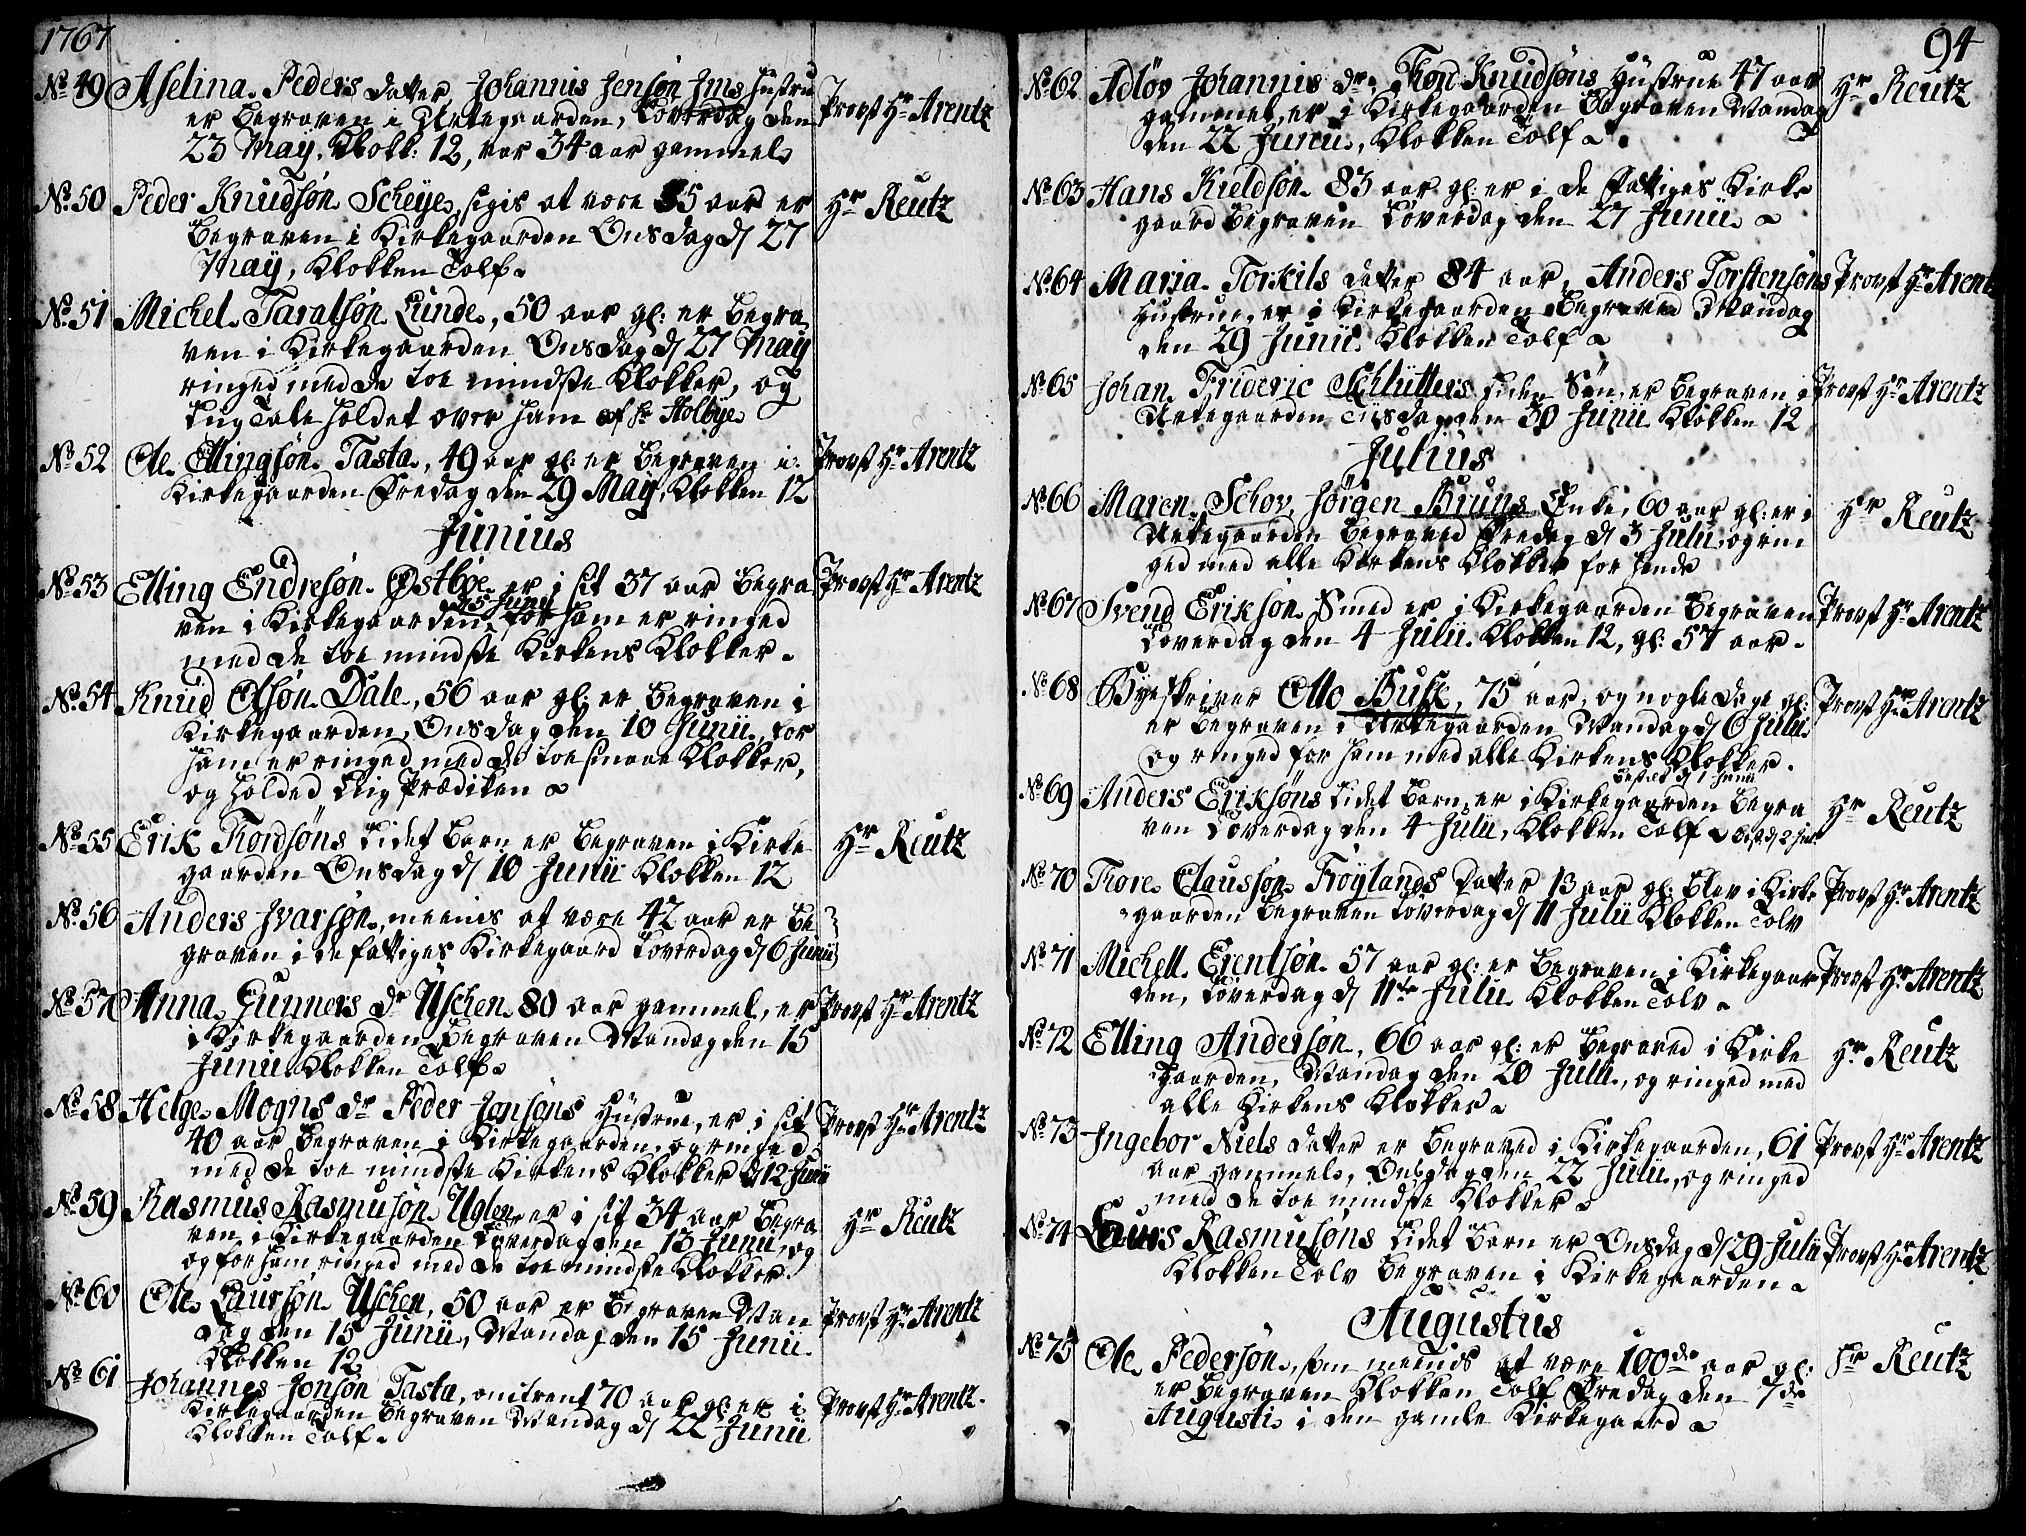 1767
No 49 Aselina Peders datter, Johannis Jensøn Jms Hustru Provst Hr Arentz
er begraven i Urtegaarden, Løverdag den
23 Maÿ, Klokk: 12, var 34 aar gammel
No 50 Peder Knudsøn Scheije, sigis at være 55 aar er Hr Reutz
begraven i Kirkegaarden Onsdag d/ 27
Maÿ, Klokken Tolf
No 51 Michel Taralsøn Lunde, 50 aar gl: er begra
ven i Kirkegaarden Onsdag d/ 27 Maÿ
ringed med de toe mindste Klokker, og
Liig Tale holdet over ham af Hr Holbÿe
No 52 Ole Ellingsøn Tasta, 49 aar gl: er begraven i Provst Hr Arentz
Kirkegaarden Fredag den 29 Maÿ, Klokken 12
Junius
No 53 Elling Endresøn Østbøe er i sit 37 aar begra Provst Hr Arentz
ven i Kirkegaarden d/ 5 Junii, for ham er ringed
med de toe mindste Kirkens Klokker
No 54 Knud Olsøn Dale, 56 aar gl: er begraven i
Kirkegaarden, Onsdag den 10 Junii, for
ham er ringed med de toe smaae Klokker,
og holded Liig Prædiken
No 55 Erik Thordsøns Lidet barn er begraven i Kirke Hr Reutz
gaarden Onsdag d/ 10 Junii Klokken 12
No 56 Anders Ivarsøn, meenes at være 42 aar er be
graven i de fattiges Kirkegaard Løverdag d/ 6 Junii
No 57 Anna Gunners dr Uschen 80 aar gammel, er Provst Hr Arentz
i Kirkegaarden begraven Mandag den 15
Junii Klokken Tolf
No 58 Helge Mogns dr Peder Jonsøns Hüstrue, er i sit Provst Hr Arentz
40 aar begraven i Kirkegaarden, og ringed
med de toe mindste Kirkens Klokker d 12 Junii
No 59 Rasmus Rasmusøn Uglen er i sit 34 aar begra Hr Reutz
ven i Kirkegaarden Løverdag den 13 Junii, og
og for ham ringed med de toe mindste Klokker
No 60 Ole Laursøn Uschen, 50 aar er begraven Man Provst Hr Arentz
dag den 15 Junii, Mandag den 15 Junii
Klokken 12
No 61 Johannes Jonsøn Tasta, omtrent 70 aar gl: er i Provst Hr Arentz
Kirkegaarden begraven Mandag d/ 22 Junii
Klokken Tolf
94
No 62 Adløv Johannis dr, Thord Knudsøns Hüstrue 47 aar Hr Reutz
gammel, er i Kirkegaarden begraven Mandag
den 22 Junii, Klokken Tolf
No 63 Hans Kieldsøn 83 aar gl: er i de fattiges Kirke
gaard begraven Løverdag den 27 Junii
No 64 Maria Torkils datter 84 aar, Anders Torstensøns Provst Hr Arentz
Hustrue, er i Kirkegaarden begraved Mandag
den 29 Junii Klokken Tolf
No 65 Johan Frideric Schlütters liden Søn er begraven i Provst Hr Arentz
Urtegaarden Tiisdag den 30 Junii Klokken 12
Julius
No 66 Maren Schov, Jørgen Bruns Enke, 60 aar gl: er i Hr Reutz
Urtegaarden begraved Fredag d/ 3 Julii, og rin
ged med alle Kirkens Klokker for hende
No 67 Svend Eriksøn Smed er i Kirkegaarden begraven Provst Hr Arentz
Løverdag den 4 Julii Klokken 12, gl: 57 aar
No 68 Byeskriver Otto Buse, 75 aar, og nogle dage gl: Provst Hr Arentz
er begraven i Urtegaarden Mandag d/ 6 Julii
og ringed for ham med alle Kirkens Klokker
No 69 Anders Eriksøns Lidet barn, er i Kirkegaarden begra Hr Reutz
ven Løverdag den 4 Julii, Klokken Tolf
No 70 Thore Clausøn Frøylands datter 13 aar gl: blev i Kirke Provst Hr Arentz
gaarden begraven Løverdag d/ 11 Julii Klokken Tolv
No 71 Michell Erentsøn 57 aar gl: er begraven i Kirkegaar Provst Hr Arentz
den, Løverdag d/ 11te Julii Klokken Tolv
No 72 Elling Andersøn, 66 aar gl: er begraved i Kirke Hr Reutz
gaarden, Mandag den 20 Julii, og ringed med
alle Kirkens Klokker
No 73 Ingebor Niels datter er begraved i Kirkegaarden, 61 Provst Hr Arentz
aar gammel, Onsdag den 22 Julii, og ringed
med de toe mindste Klokker
No 74 Laurs Rasmusøns Lidet barn er Onsdag d/ 29 Julii Provst Hr Arentz
Klokken Tolv begraven i Kirkegaarden
Augustus
No 75 Ole Pedersøn, som meenes at være 100de aar gl: Hr Reutz
er begraven Klokken Tolf Fredag den 7de
Augusti i den gamle Kirkegaard